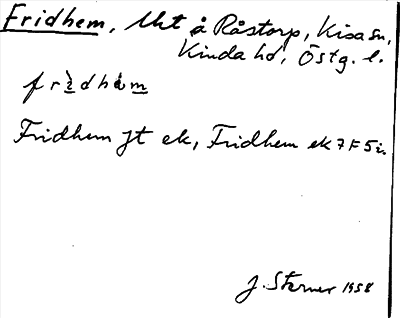 Fridhem, lht å Råstorp, Kisa sn,
Kinda hd, Östg. l.
frìdhèm
Fridhem jt ek, Fridhem ek 7F5i.
J. Sterner 1958